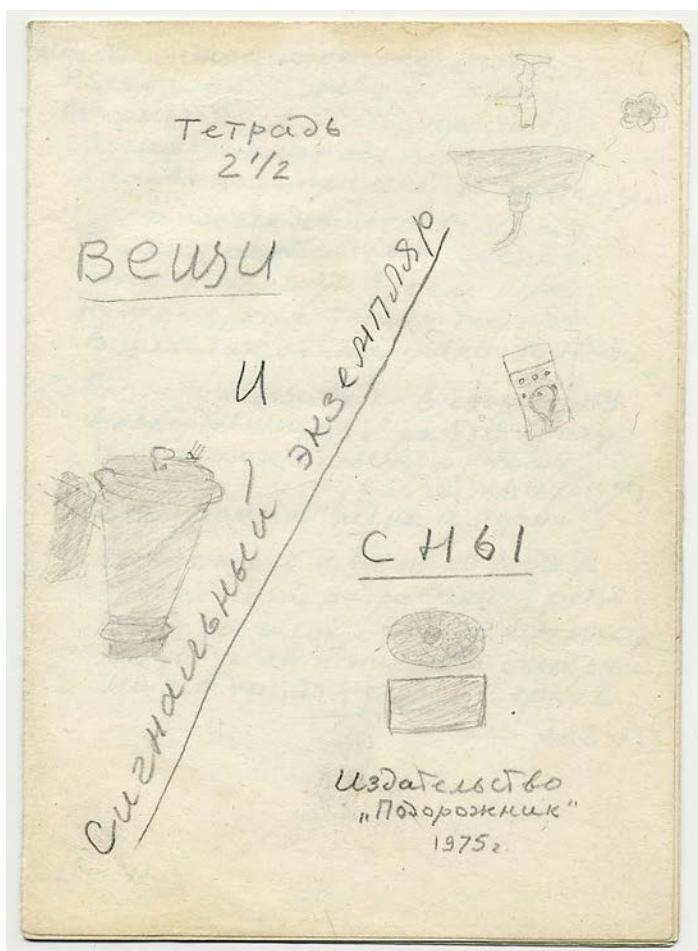 Тетрадь
2 1/2
Вещи
и
сны
Сигнальный экземпляр
Издательство
„Подорожник“
1975 г.